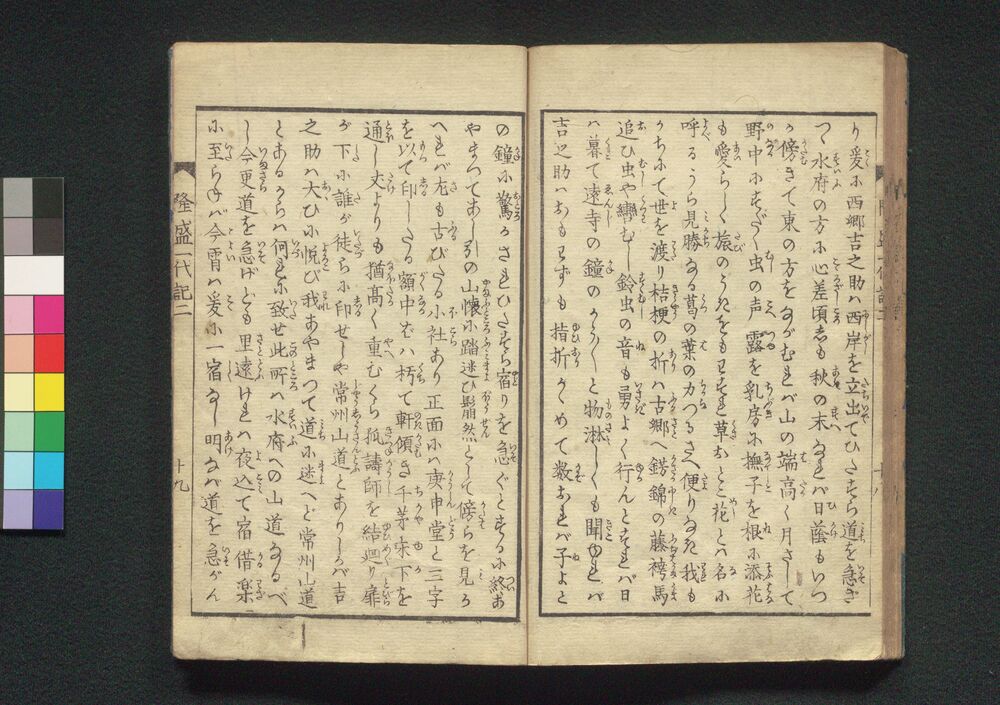 り爰に西郷吉之助ハ西岸を立出てひたすら道を急ぎ
つゝ水府の方に心差頃しも秋の末なれバ日蔭もいつ
か傍きて東の方をながむれバ山の端高く月さして
野中にすだく虫の声露を乳房に撫子を根に添花
も愛らしく旅のうさをもわすれ草おとこ花とハ名に
呼うら見勝なる葛の葉の力つるさへ便りなき我も
追ひ虫や轡むし鈴虫の音も勇よく行んとすれバ日
かちにて世を渡り桔梗の折ハ古郷へ錺錦の藤袴馬
ハ暮て遠寺の鐘のかう〳〵と物淋しくも聞ゆれバ
吉之助ハおもわずも指折かゞめて数おれバ子よと
の鐘に驚かされひたすら宿りを急ぐとするに終あ
やまつてあし引の山懐に踏迷ひ髴然として傍らを見る
へれバ左も古びたる小社あり正面にハ庚申堂と三字
を以て印したる額中ばハ朽て軒傾き千茅床下を
通し丈よりも猶高く重むぐら狐譸師を結廻り扉
が下に誰が徒らに印せしや常州山道とありしかバ吉
之助ハ大ひに悦び我あやまつて道に迷へど常州山道
とあるからハ何れに致せ此所ハ水府への山道なるべ
し今更道を急げども里遠けれバ夜込て宿借楽
に至らねバ今宵ハ爰に一宿なし明なバ道を急がん
隆盛一代記二
十九